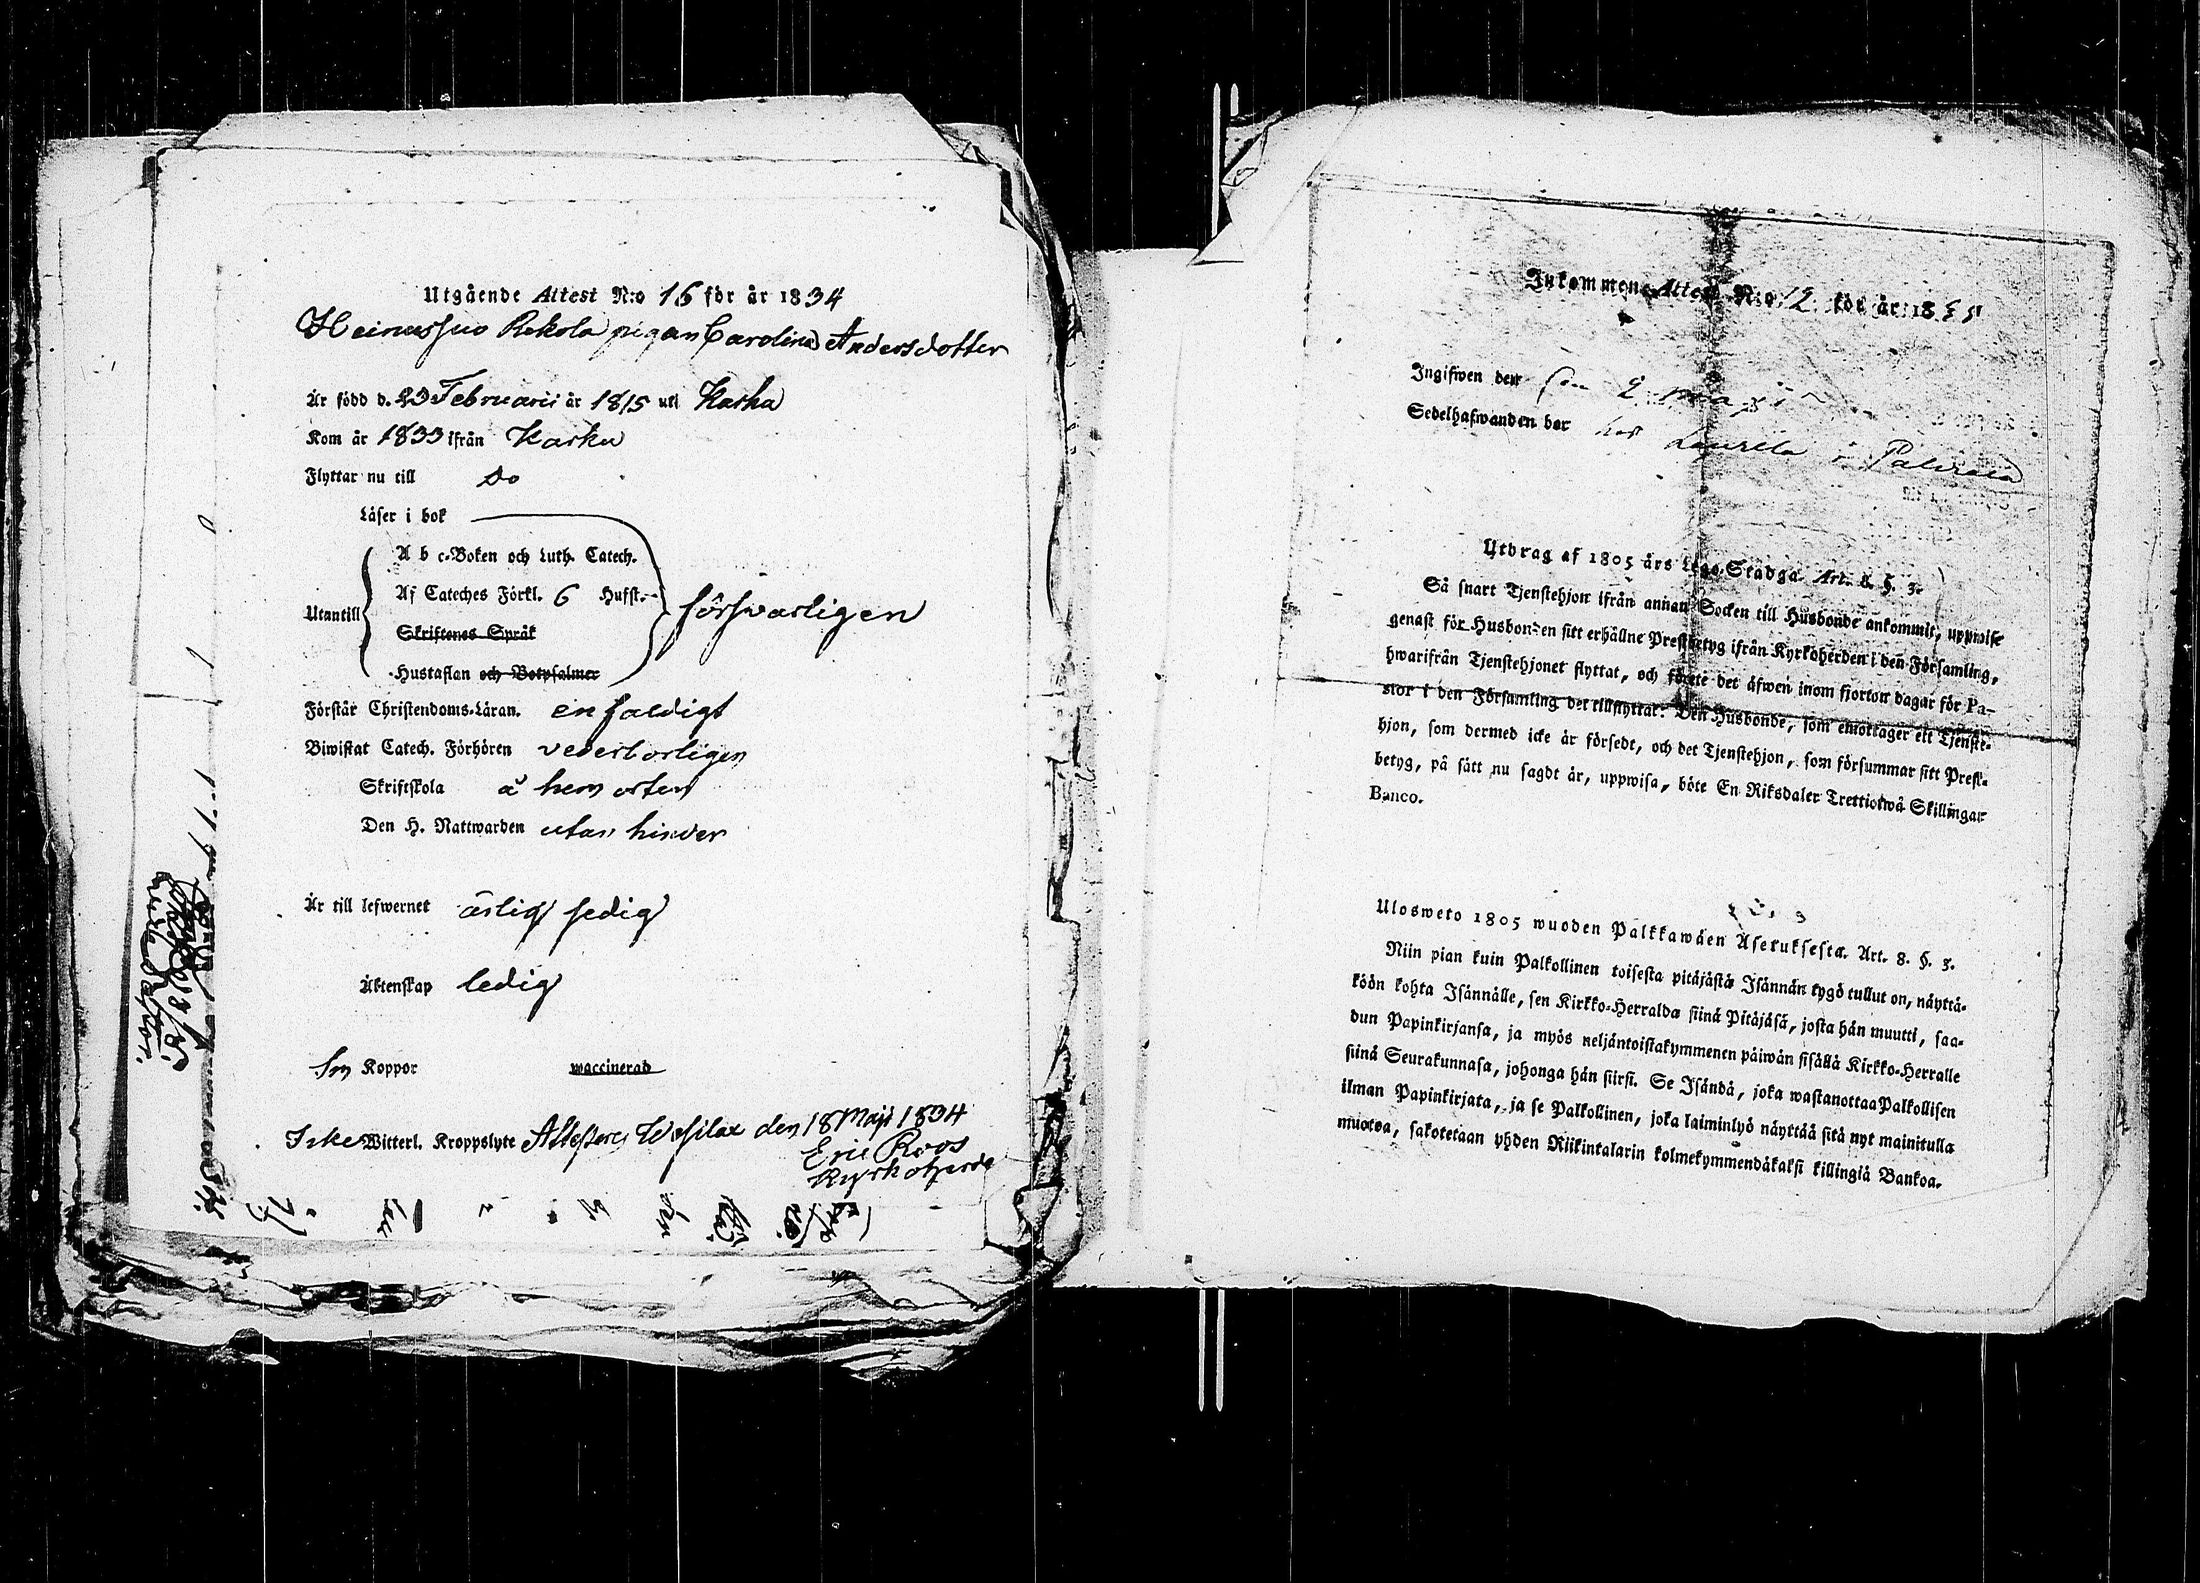 Utgående Attest N:o 16 för år 1834
Heinussuo Rekola pigan Carolina Andersdotter
Är född d. 23 Februarii år 1815 uti Karku
Kom år 1833 ifrån Karku
Flyttar nu till Do
Läser i bok
A b c-Boken och Luth. Catech.
Utantill Af Cateches Förkl. 6 Hufst. försvarligen
Skriftenes Språk
Hustaflan och Botpsalmer
Förstår Christendoms-Läran. enfaldigt
Biwistat Catech. Förhören vederborligen
Skriftskola å hemorten
Den H. Nattwarden utan hinder
Är till lefwernet ärlig sedig
Äktenskap ledig
Koppor waccinerad
Icke Witterl. Kroppslyte Attesterar Wesilax den 18 Maji 1834
Eric Roos
Kyrkoherde
Inkommen Attest N:o 12 för år 18
Ingifwen den
Sedelhafwanden bor hos Laurila i
Utdrag af 1805 års Lego-Stadga. Art. 8. §. 3.
Så snart Tjenstehjon ifrån annan Socken till Husbonde ankommit, uppwise
genast för Husbonden sitt erhållne Prestbetyg ifrån Kyrkoherden i den Församling,
hwarifrån Tjenstehjonet flyttat, och förete det äfwen inom fjorton dagar för Pa-
stor i den Församling det tillflyttat. Den Husbonde, som emottager ett Tjenste-
hjon, som dermed icke är försedt, och det Tjenstehjon, som försummar sitt Prest-
betyg, på sätt nu sagdt är, uppwisa, böte En Riksdaler Trettiotwå Skillingar
Banco.
Ulosweto 1805 wuoden Palkkawäen Asetuksesta. Art. 8. §. 3.
Niin pian kuin Palkollinen toisesta pitäjästä Isännän tygö tullut on, näyttä-
köön kohta Isännälle, sen Kirkko-Herralda siinä Pitäjäsä, josta hän muutti, saa-
dun Papinkirjansa, ja myös neljäntoistakymmenen päiwän sisällä Kirkko-Herralle
siinä Seurakunnasa, johonga hän siirsi. Se Isändä, joka wastanottaa Palkollisen
ilman Papinkirjata, ja se Palkollinen, joka laiminlyö näyttää sitä nyt mainitulla
muotoa, sakotetaan yhden Riikintalarin kolmekymmendäkaksi killingiä Bankoa.